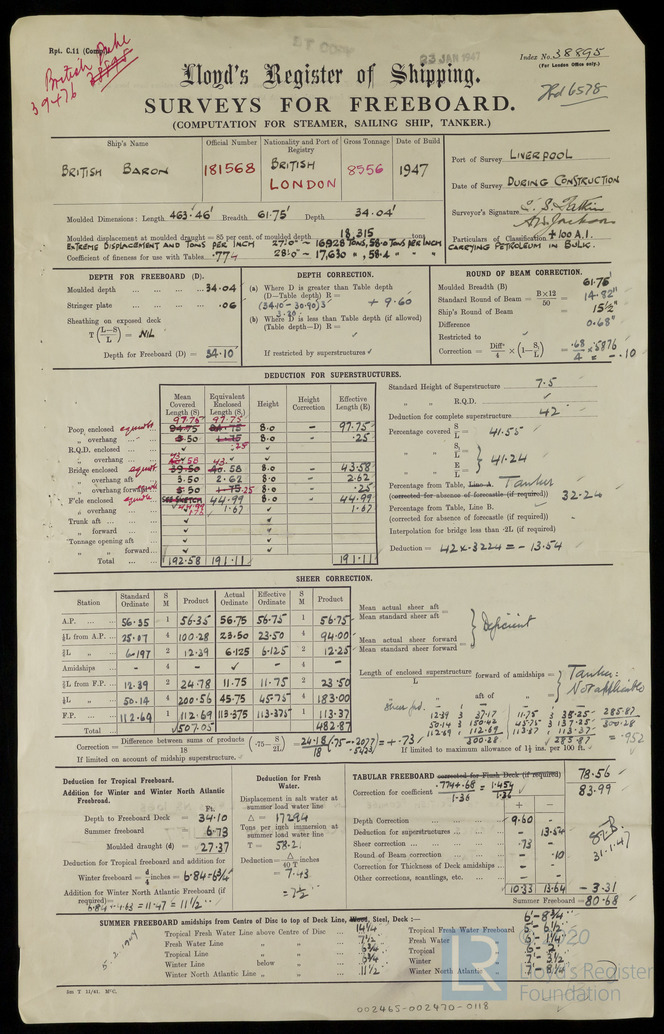 Rpt. C.11 (Comp).
British Duke
38895
39476
23 JAN 1947
Index No. 38895
(For London Office only.)
Lloyd's Register of Shipping.
SURVEYS FOR FREEBOARD.
(COMPUTATION FOR STEAMER, SAILING SHIP, TANKER.)
Ship's Name Official Number Nationality and Port of Registry Gross Tonnage Date of Build
BRITISH BARON 181568 BRITISH LONDON 8556 1947
Port of Survey LIVERPOOL
Date of Survey DURING CONSTRUCTION
Surveyor's Signature
Particulars of Classification +100 A.1.
CARRYING PETROLEUM IN BULK.
Moulded Dimensions: Length 463.46' Breadth 61.75' Depth 34.04'
Moulded displacement at moulded draught = 85 per cent. of moulded depth 18,315 tons
EXTREME DISPLACEMENT AND TONS PER INCH 27'.0" ~ 16928 TONS, 58.0 TONS PER INCH
Coefficient of fineness for use with Tables .774 28'.0" ~ 17,630 " , 58.4 " " "
DEPTH FOR FREEBOARD (D).
Moulded depth 34.04
Stringer plate .06
Sheathing on exposed deck
T (L-S/L) = NIL
Depth for Freeboard (D) = 34.10
DEPTH CORRECTION.
(a) Where D is greater than Table depth
(D-Table depth) R =
(34.10 - 30.90) 3 + 9.60
3.20
(b) Where D is less than Table depth (if allowed)
(Table depth-D) R =
If restricted by superstructures
ROUND OF BEAM CORRECTION.
Moulded Breadth (B) 61.76'
Standard Round of Beam = B×12/50 = 14.82"
Ship's Round of Beam = 15½"
Difference 0.68"
Restricted to
Correction = Diff/4 × (1-S/L) = .68/4 × .5876 = -.10
DEDUCTION FOR SUPERSTRUCTURES.
Mean Covered Length (S) Equivalent Enclosed Length (S₁) Height Height Correction Effective Length (E)
Poop enclosed 97.75 97.75 8.0 - 97.75
" overhang 3.50 1.75 .25
R.Q.D. enclosed
" overhang
Bridge enclosed 39.50 40.58 8.0 - 43.58
" overhang aft 3.50 2.62 8.0 - 2.62
" overhang forward 3.50 1.75 .25 8.0 - .25
F'cle enclosed 44.99 8.0 - 44.99
" overhang 1.67 1.67
Trunk aft
" forward
Tonnage opening aft
" " forward
Total 192.58 191.11 191.11
Standard Height of Superstructure 7.5
" " R.Q.D.
Deduction for complete superstructure 42
Percentage covered S/L = 41.55
" " S₁/L =
" " E/L = 41.24
Percentage from Table, Line A. Tanker
(corrected for absence of forecastle (if required)) 32.24
Percentage from Table, Line B.
(corrected for absence of forecastle (if required))
Interpolation for bridge less than .2L (if required)
Deduction = 42 x .3224 = - 13.54
SHEER CORRECTION.
Station Standard Ordinate S M Product Actual Ordinate Effective Ordinate S M Product
A.P. 56.35 1 56.35 56.75 56.75 1 56.75
⅙L from A.P. 25.07 4 100.28 23.50 23.50 4 94.00
⅓L " 6.197 2 12.39 6.125 6.125 2 12.25
Amidships - 4 - - 4 -
⅓L from F.P. 12.39 2 24.78 11.75 11.75 2 23.50
⅙L " 50.14 4 200.56 45.75 45.75 4 183.00
F.P. 112.69 1 112.69 113.375 113.375 1 113.37
Total 507.05 482.87
Mean actual sheer aft
Mean standard sheer aft =
Mean actual sheer forward
Mean standard sheer forward =
Deficient
Length of enclosed superstructure forward of amidships =
L
" aft of " =
Tanker: Not applicable
Sheer fwd.
12.39 3 37.17 11.75 3 35.25 285.87
50.14 3 150.42 45.75 3 137.25 300.28
112.69 1 112.69 113.37 1 113.37
300.28 285.87 = .952
Correction = Difference between sums of products/18 (.75 - S/2L) = 24.18/18 (.75 - .2077) = + .73
.5423
If limited on account of midship superstructure.
If limited to maximum allowance of 1½ ins. per 100 ft.
Deduction for Tropical Freeboard.
Addition for Winter and Winter North Atlantic Freeboard.
Ft.
Depth to Freeboard Deck = 34.10
Summer freeboard = 6.73
Moulded draught (d) = 27.37
Deduction for Tropical freeboard and addition for
Winter freeboard = d/4 inches = 6.84 = 6¾"
Addition for Winter North Atlantic Freeboard (if required) =
6.84 + 4.63 = 11.47 = 11½"
Deduction for Fresh Water.
Displacement in salt water at summer load water line
Δ = 17294
Tons per inch immersion at summer load water line
T = 58.2
Deduction = Δ/40T inches
= 7.43
= 7½"
TABULAR FREEBOARD corrected for Flush Deck (if required) 78.56
Correction for coefficient .774+.68/1.36 = 1.454/1.36 83.99
+ -
Depth Correction 9.60 -
Deduction for superstructures - 13.54
Sheer correction .73 -
Round of Beam correction - .10
Correction for Thickness of Deck amidships - -
Other corrections, scantlings, etc. - -
10.33 13.64 - 3.31
Summer Freeboard = 80.68
31.1.47
SUMMER FREEBOARD amidships from Centre of Disc to top of Deck Line, Wood, Steel, Deck :- 6'- 8¾"
Tropical Fresh Water Line above Centre of Disc 14¼
Fresh Water Line " " 7½
Tropical Line " " 6¾
Winter Line below " 6¾
Winter North Atlantic Line " " 11½
Tropical Fresh Water Freeboard 5'- 6½"
Fresh Water " 6'- 1¼"
Tropical " 6'- 2"
Winter " 7'- 3½"
Winter North Atlantic " 7'- 8¼"
5m T 11/41. McC.
002465-002470-0118
LR
© 2020
Lloyd's Register
Foundation